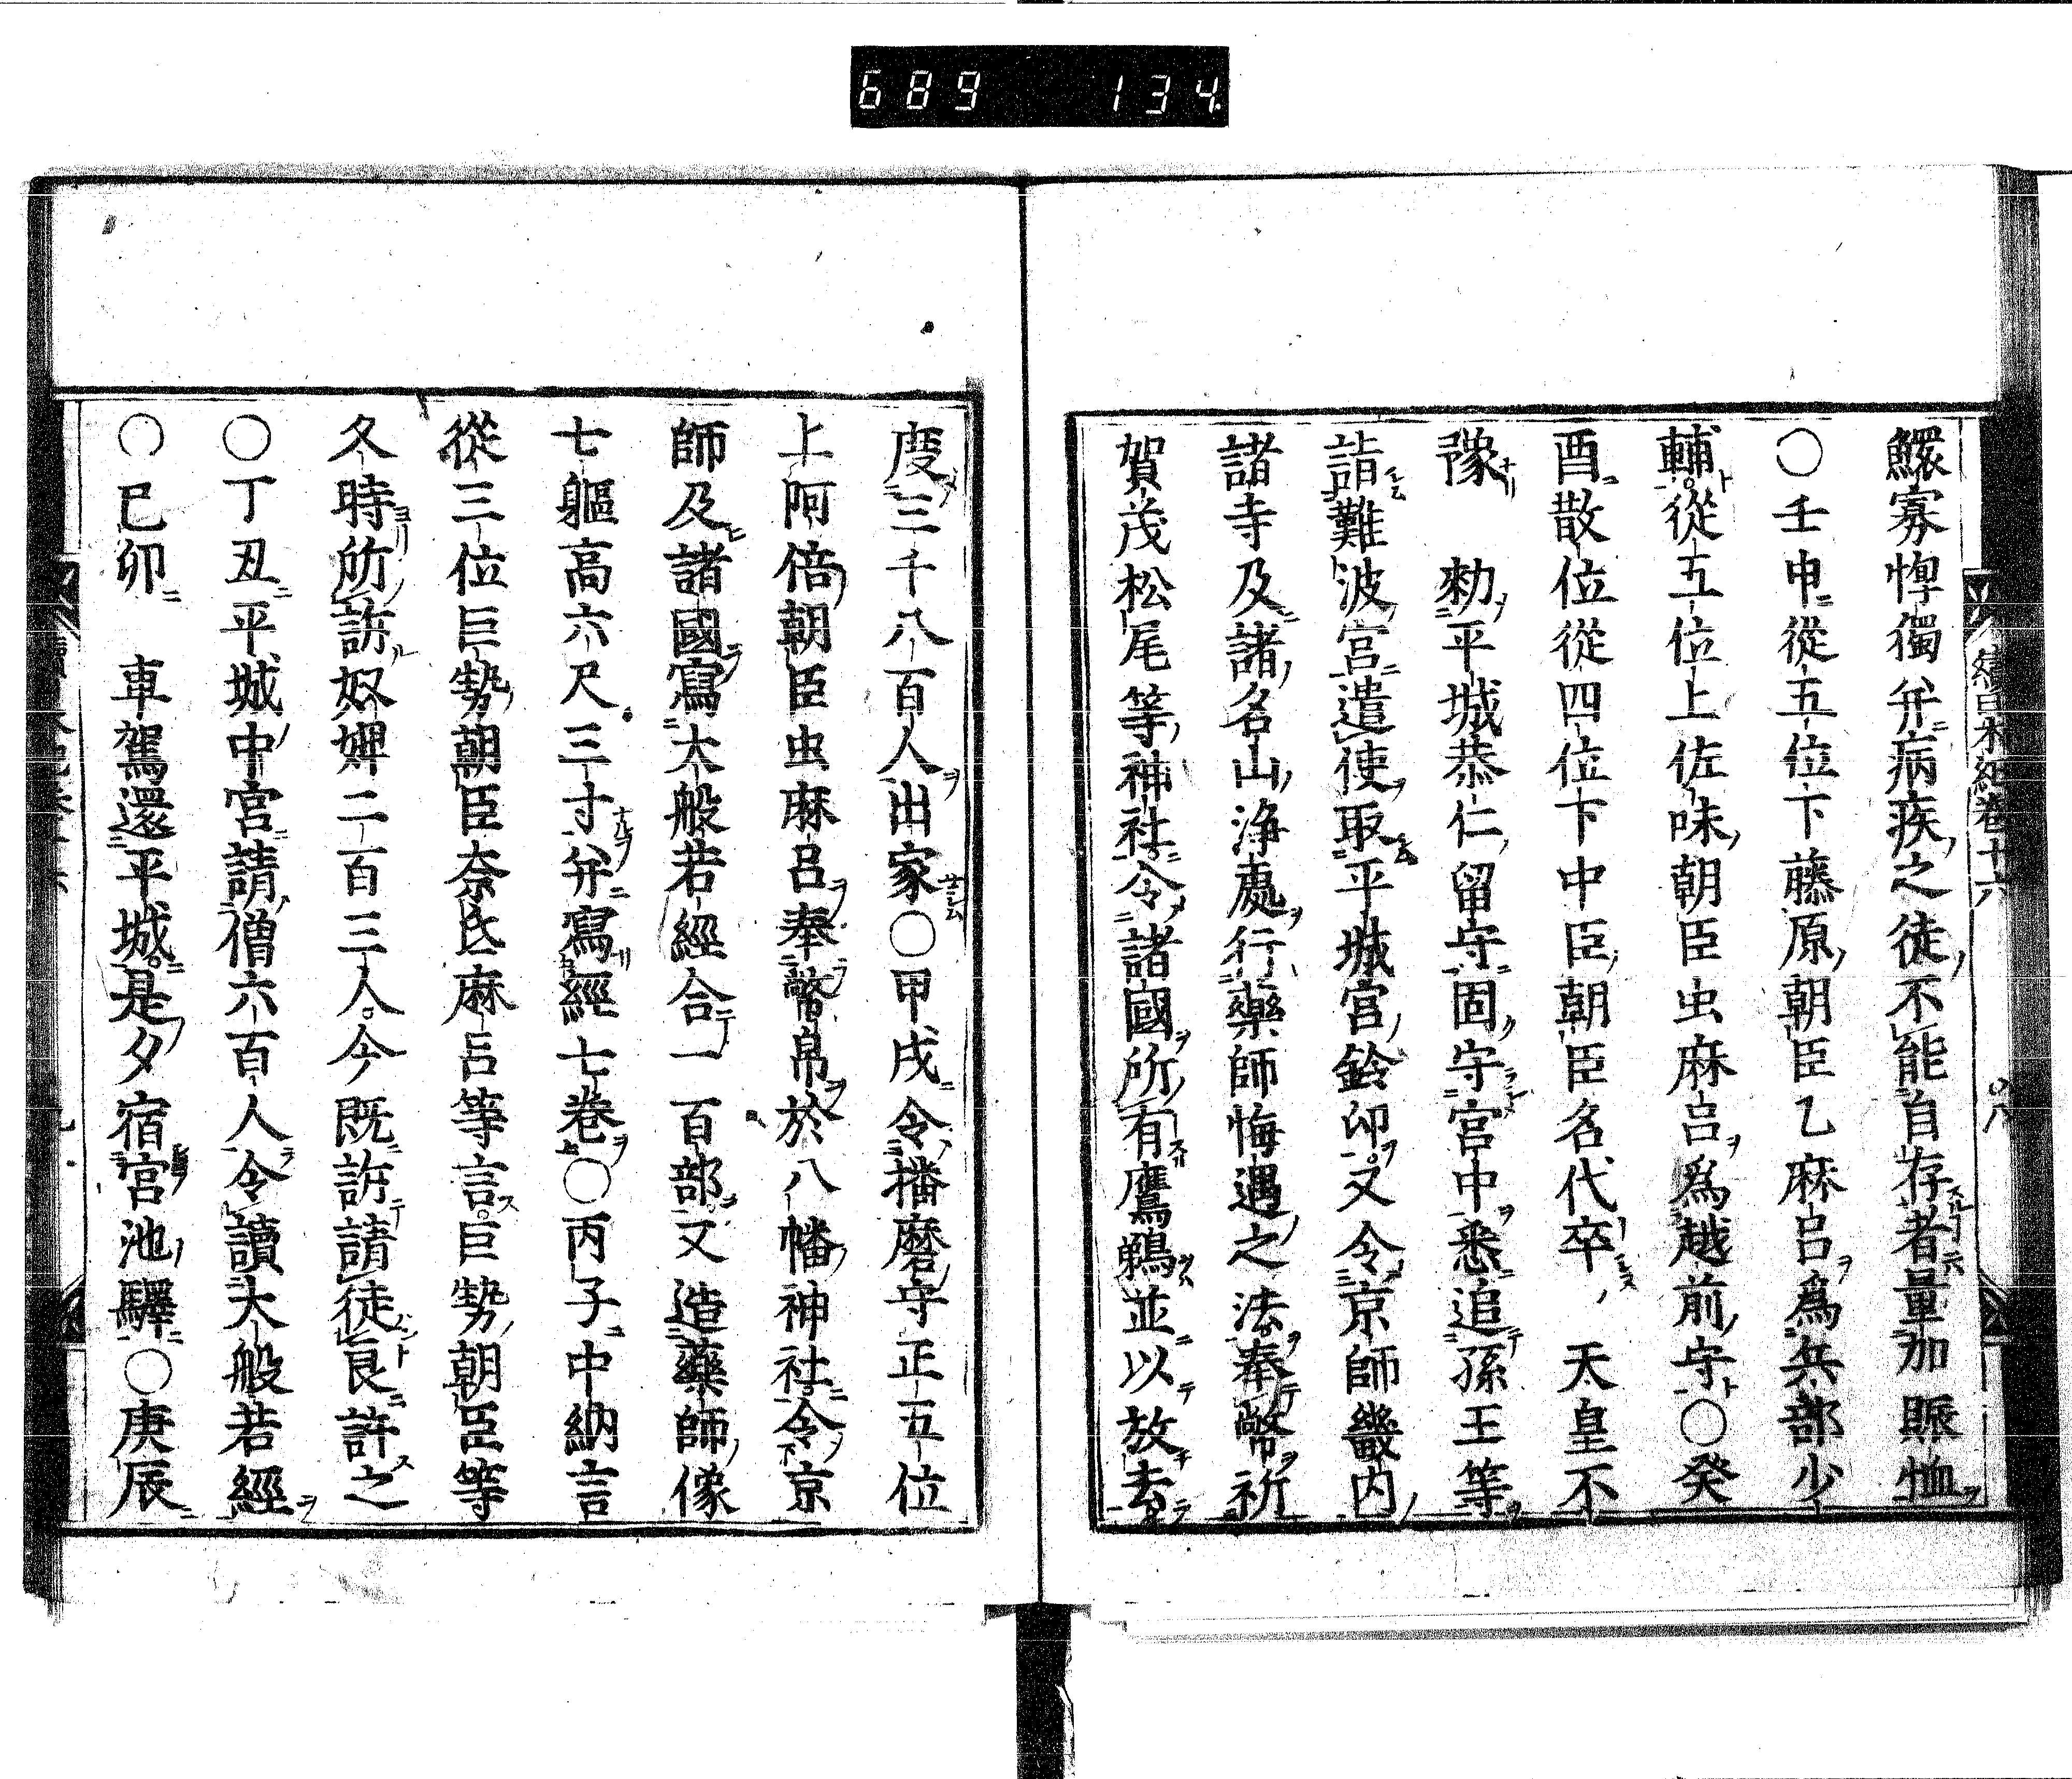 689 134
續日本紀卷十六
鰥寡惸獨并病疾之徒不能自存者量加賑恤
○壬申從五位下藤原朝臣乙麻呂爲兵部少
輔從五位上佐味朝臣虫麻呂爲越前守○癸
酉散位從四位下中臣朝臣名代卒天皇不
豫 勑平城恭仁留守固守宮中悉追孫王等
詣難波宮遣使取平城宮鈴印又令京師畿内
諸寺及諸名山淨處行藥師悔過之法奉幣祈
賀茂松尾等神社令諸國所有鷹鵜並以放去
度三千八百人出家○甲戌令播磨守正五位
上阿倍朝臣虫麻呂奉幣帛於八幡神社令京
師及諸國寫大般若經合一百部又造藥師像
七軀高六尺三寸并寫經七卷○丙子中納言
從三位巨勢朝臣奈氐麻呂等言巨勢朝臣等
久時所訴奴婢二百三人今既訴請徒良許之
○丁丑平城中宮請僧六百人令讀大般若經
○巳卯 車駕還平城是夕宿宮池驛○庚辰